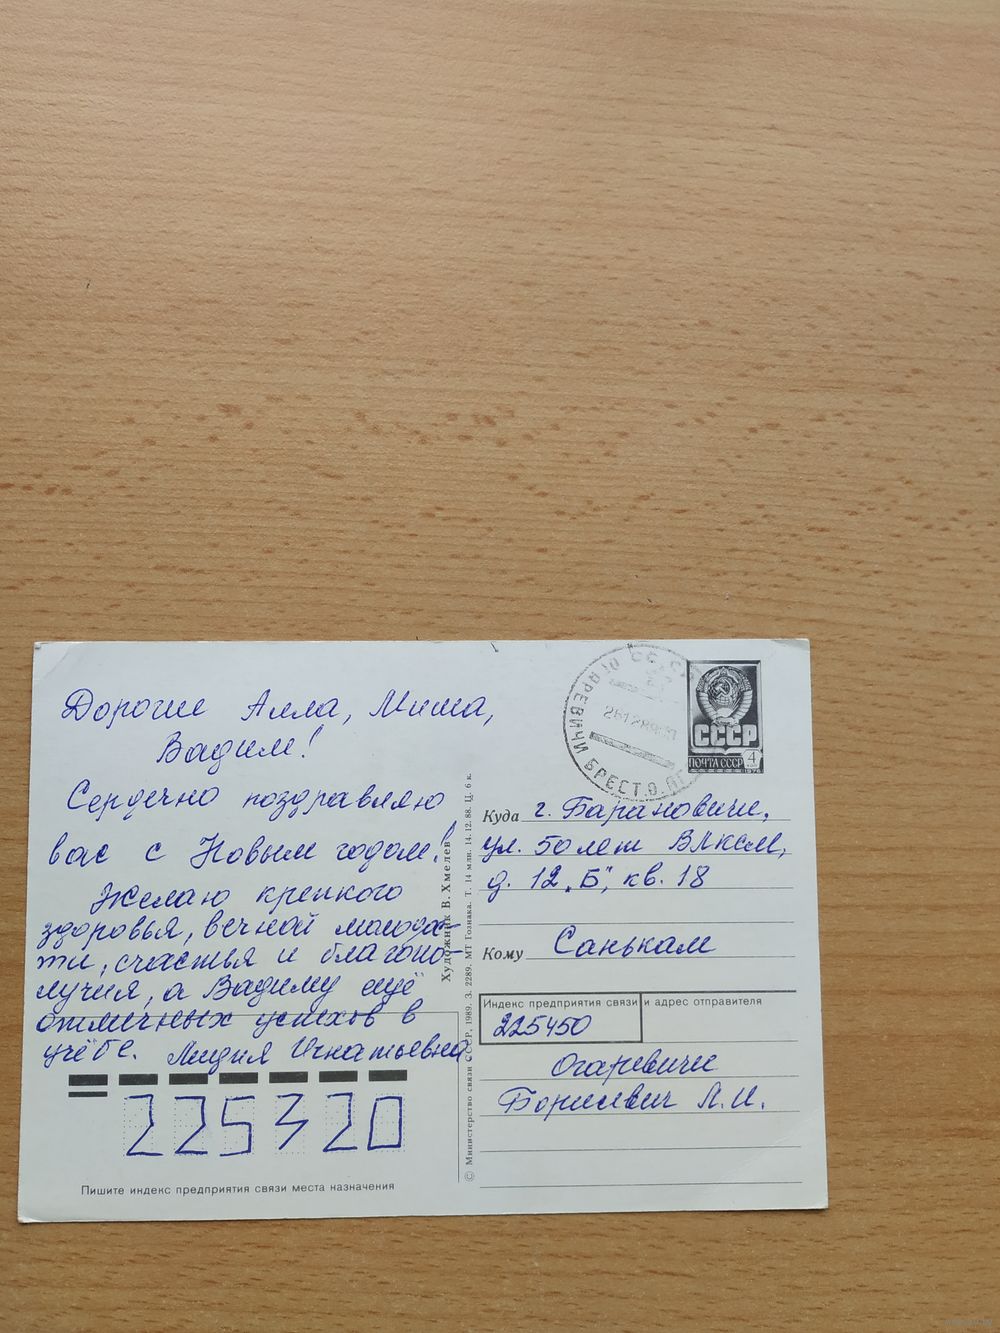 Дорогие Алла, Миша,
Вадим!
Сердечно поздравляю
вас с Новым годом!
Желаю крепкого
здоровья, вечной молодос-
ти, счастья и благопо-
лучия, а Вадиму ещё
отличных успехов в
учёбе. Лидия Игнатьевна
225320
Пишите индекс предприятия связи места назначения
Художник В. Хмелев
© Министерство связи СССР, 1989. З. 2289. МТ Гознака. Т. 14 млн. 14.12.88. Ц. 6 к.
СССР
ОГАРЕВИЧИ БРЕСТ.О.
261289
СССР
ПОЧТА СССР 4
1976
Куда г. Барановичи,
ул. 50 лет ВЛКСМ,
д. 12 „Б", кв. 18
Кому Санькам
Индекс предприятия связи и адрес отправителя
225450
Огаревичи
Борисевич Л.И.